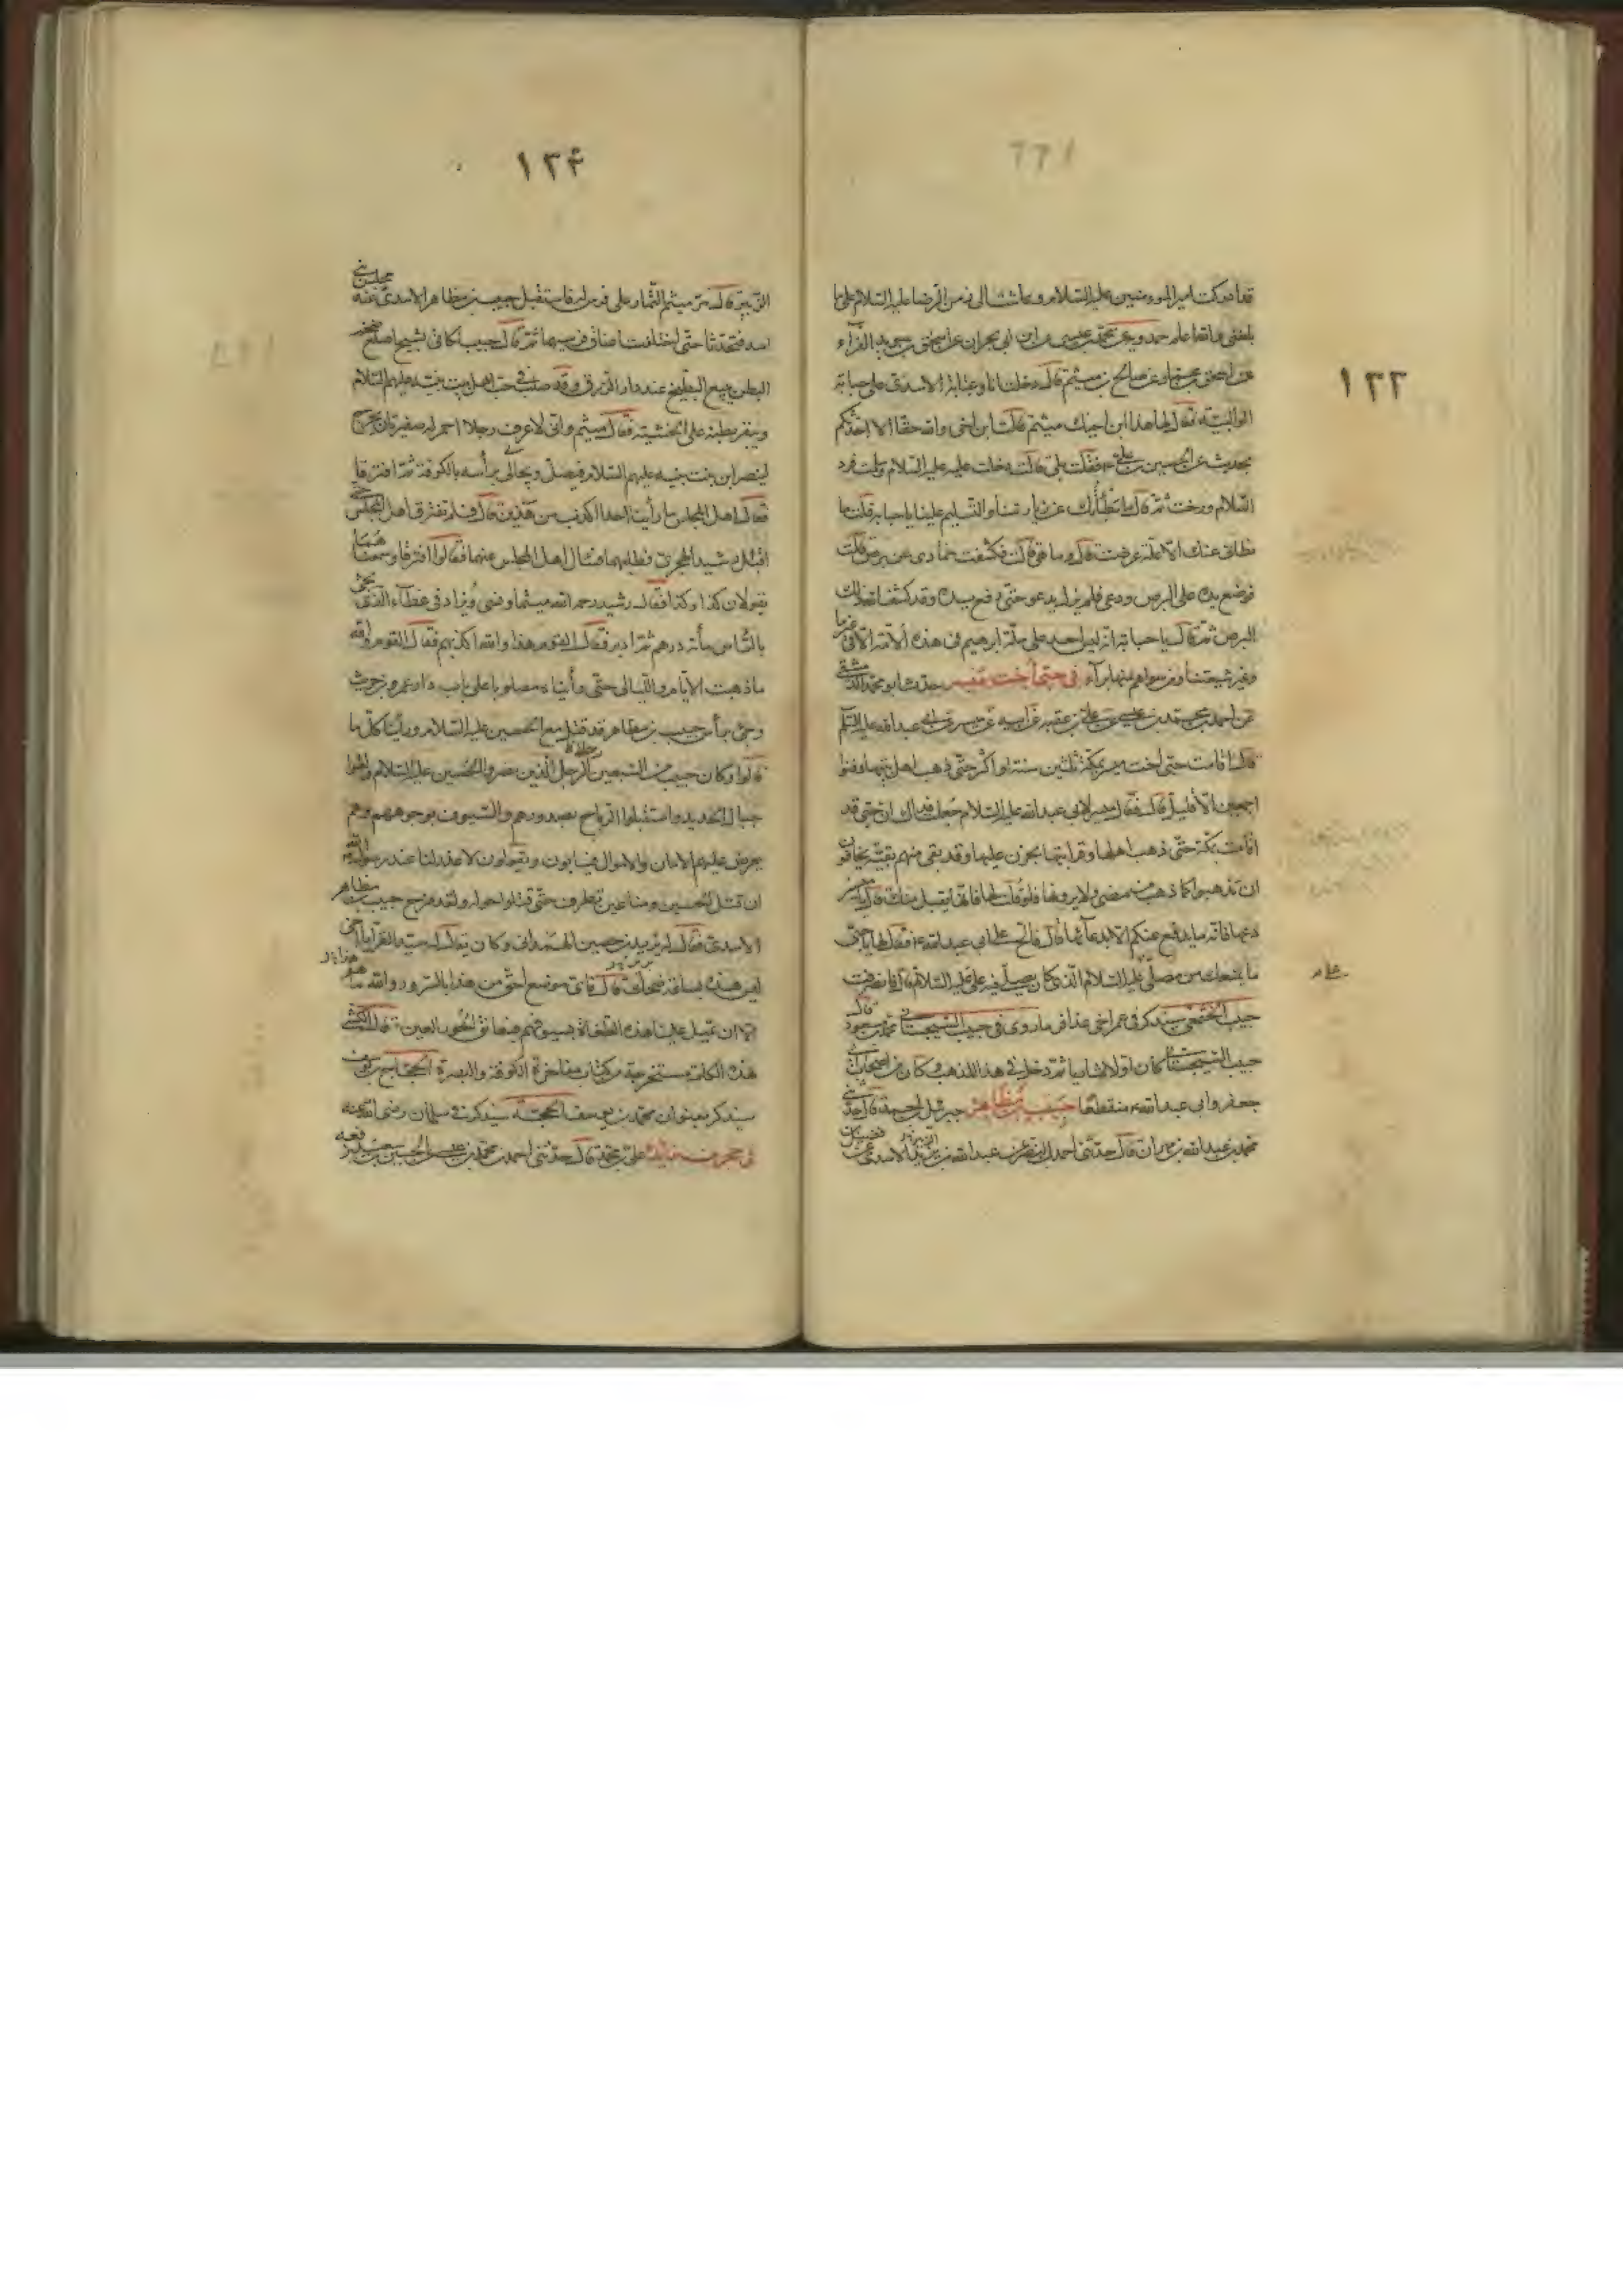 ١٣٣
قد ادركت اميرالمؤمنين عليه السلام وعاشت الى زمن الرضا عليه السلام على ما
بلغنى والله اعلم حمدويه عن محمد بن عيسى عن ابن ابى نجران عن اسحق بن سويد الفرآء
عن اسحق بن عمار عن صالح بن ميثم قال دخلت انا وعباية الاسدى على حبابة
الوالبية فقال لها هذا ابن اخيك ميثم قالت ابن اخى والله حقا الا احدثكم
بحديث عن الحسين بن على فقلت بلى قالت دخلت عليه عليه السلام وسلمت فرد
السلام ورحب ثم قال ما بطأك عن زيارتنا والتسليم علينا يا حبابة قلت ما
بطانى عنك الا علة عرضت قال وما هى قالت فكشفت خمارى عن برص قالت
فوضع يده على البرص ودعى فلم يزل يدعو حتى رفع يده وقد كشف الله ذلك
البرص ثم قال يا حبابة انه ليس احد على ملة ابرهيم فى هذه الامة الا فى غيرنا
وغير شيعتنا ومن سواهم منها برآء فى حبى اخت ميسر حدثنا ابو محمد الدمشقى
عن احمد بن محمد بن عيسى عن على بن عقبة عن ابيه عن ميسر عن ابى عبدالله عليه السلم
قال اقامت حبى اخت ميسر بمكة ثلثين سنة او اكثر حتى ذهب اهل بيتها وفنوا
اجمعين الا قليلا قال فقال ميسر لابى عبدالله عليه السلام جعلت فداك ان حبى قد
اقامت بمكة حتى ذهب اهلها وقرابتها تحزن عليها وقد بقى منهم بقية يخافون
ان تذهبوا كما ذهب من مضى ولا يرونها فلو قلت لها فانها يقبل منك قال يا ميسر
دعها فانه ما يدفع عنكم الا بدعائها قال فالح على ابى عبدالله فقال لها يا حبى
ما يمنعك من مصلى على عليه السلام الذى كان يصلى فيه على عليه السلام قال فانصرفت
حبيب الخثعمى سيذكر فى عمر اخى عذافر ما روى فى حبيب السجستانى قال محمد بن مسعود
حبيب السجستانى كان اولا شاريا ثم دخل فى هذا المذهب وكان من اصحاب ابى
جعفر وابى عبدالله منقطعا حبيب بن مظاهر جبرئيل بن احمد قال حدثنى
محمد بن عبدالله بن مهران قال حدثنى احمد بن النضر عن عبدالله بن يزيد الاسدى عن فضيل بن
١٣۴
الزبير قال مر ميثم التمار على فرس له فاستقبل حبيب بن مظاهر الاسدى عند مجلس بنى
اسد فتحدثا حتى اختلفت اعناق فرسيهما ثم قال حبيب لكانى بشيخ اصلع ضخم
البطن يبيع البطيخ عند دار الرزق وقد صلب فى حب اهل بيت نبيه عليهم السلام
ويبقر بطنه على الخشبة فقال ميثم وانى لاعرف رجلا احمر له ضفيرتان يخرج
لينصر ابن بنت نبيه عليهم السلام فيقتل ويجال برأسه بالكوفة ثم افترقا
فقال اهل المجلس ما رأينا احدا اكذب من هذين قال فلم تفترق اهل المجلس حتى
اقبل رشيد الهجرى فطلبهما فسال اهل المجلس عنهما فقالوا افترقا وسمعناهما
يقولان كذا وكذا فقال رشيد رحم الله ميثما ونسى ويزاد فى عطآء الذى يجئ
بالرأس مأة درهم ثم ادبر فقال القوم هذا والله اكذبهم فقال القوم والله
ما ذهبت الايام والليالى حتى رأيناه مصلوبا على باب دار عمرو بن حريث
وجئ برأس حبيب بن مظاهر قد قتل مع الحسين عليه السلام ورأينا كل ما
قالوا وكان حبيب من السبعين الرجل الذين نصروا الحسين عليه السلام ولقوا
جبال الحديد واستقبلوا الرماح بصدورهم والسيوف بوجوههم وهم
يعرض عليهم الامان والاموال فيأبون ويقولون لا عذر لنا عند رسول الله
ان قتل الحسين ومنا عين تطرف حتى قتلوا حوله ولقد مزح حبيب بن مظاهر
الاسدى فقال له يزيد بن حصين الهمدانى وكان يقال له سيد القرآء يا اخى
ليس هذه بساعة ضحك قال فاى موضع احق من هذا بالسرور والله ما هو
الا ان تميل علينا هذه الطغاة بسيوفهم فنعانق الحور العين قال الكشى
هذه الكلمة مستخرجة من كتاب مفاخرة الكوفة والبصرة الحجاج بن يوسف
سيذكر بعنوان محمد بن يوسف الحجبة سيذكر فى سلمان رضى الله عنه
فى حجر بن زائدة على بن محمد قال حدثنى احمد بن محمد بن عيسى عن الحسين بن سعيد رفعه